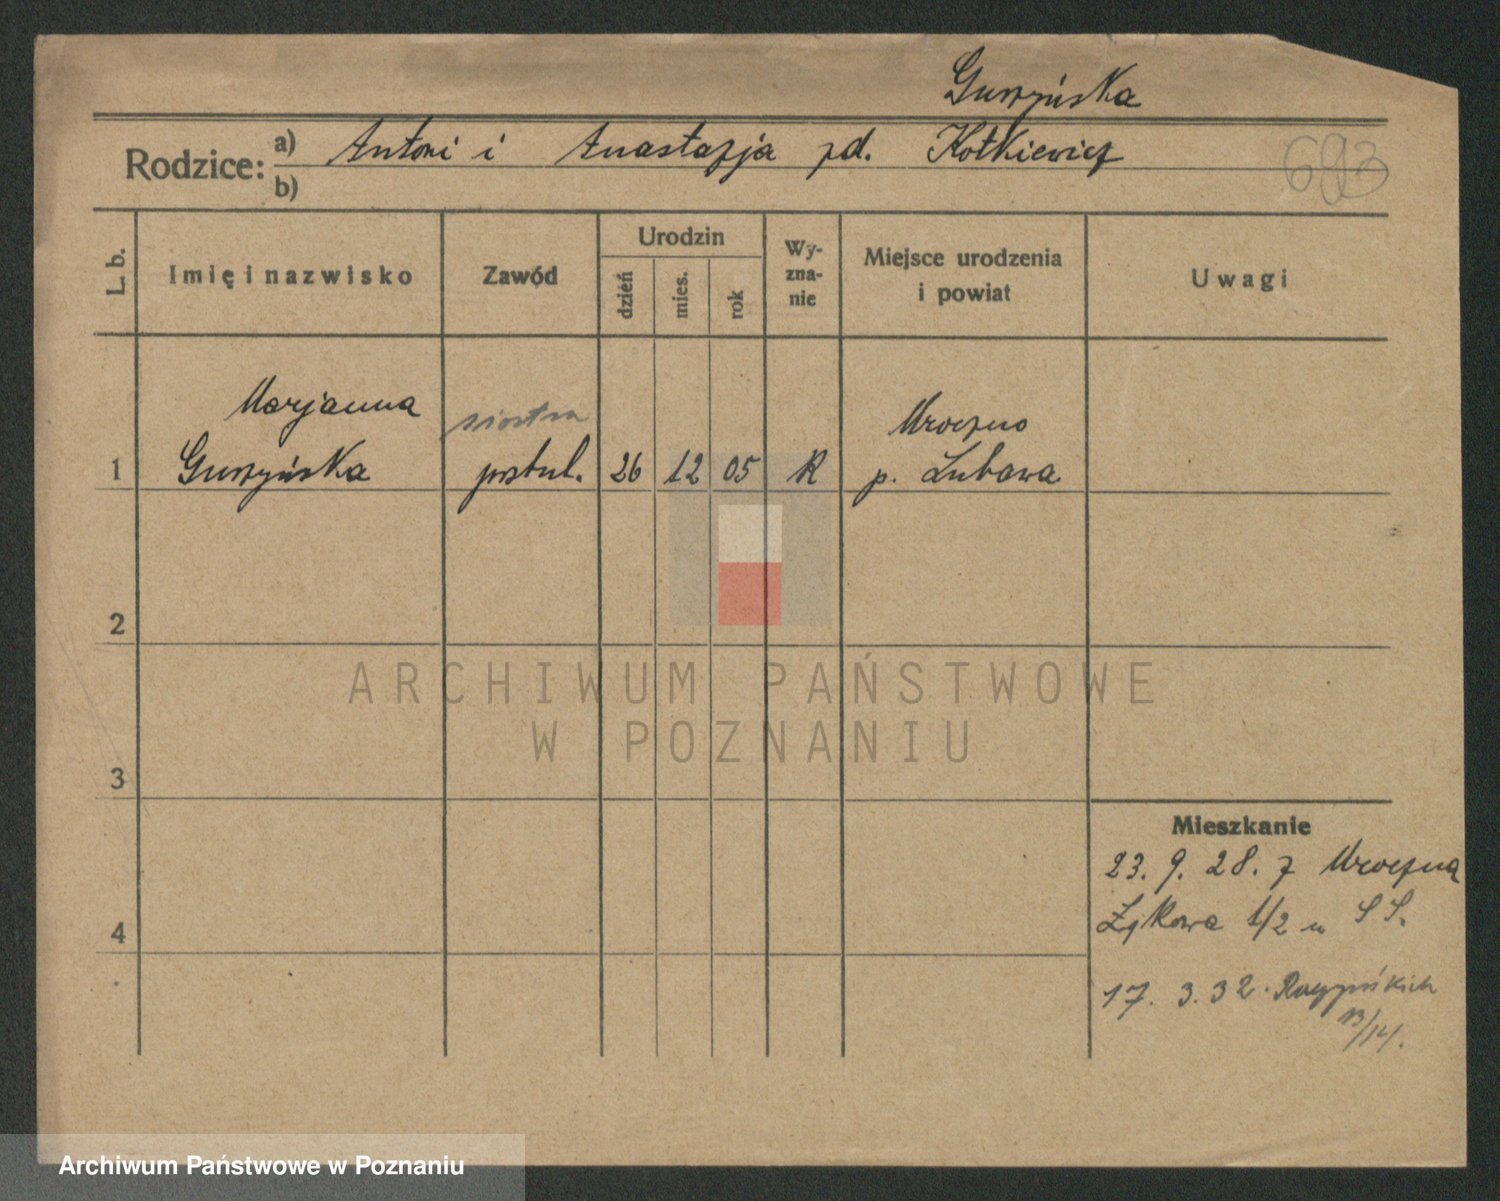 Guszyńska
Rodzice: a) Antoni i Anastazja zd. Kotkiewicz
b)
693
L. b. Imię i nazwisko Zawód Urodzin dzień mies. rok Wy-zna-nie Miejsce urodzenia i powiat Uwagi
Marjanna siostra Mroczno
1 Guszyńska postul. 26 12 05 R p. Lubawa
2
ARCHIWUM PAŃSTWOWE
W POZNANIU
3
Mieszkanie
23. 9. 28. z Mroczna
4 Łąkowa 1/2 u S S.
17. 3. 32.
13/14.
Archiwum Państwowe w Poznaniu